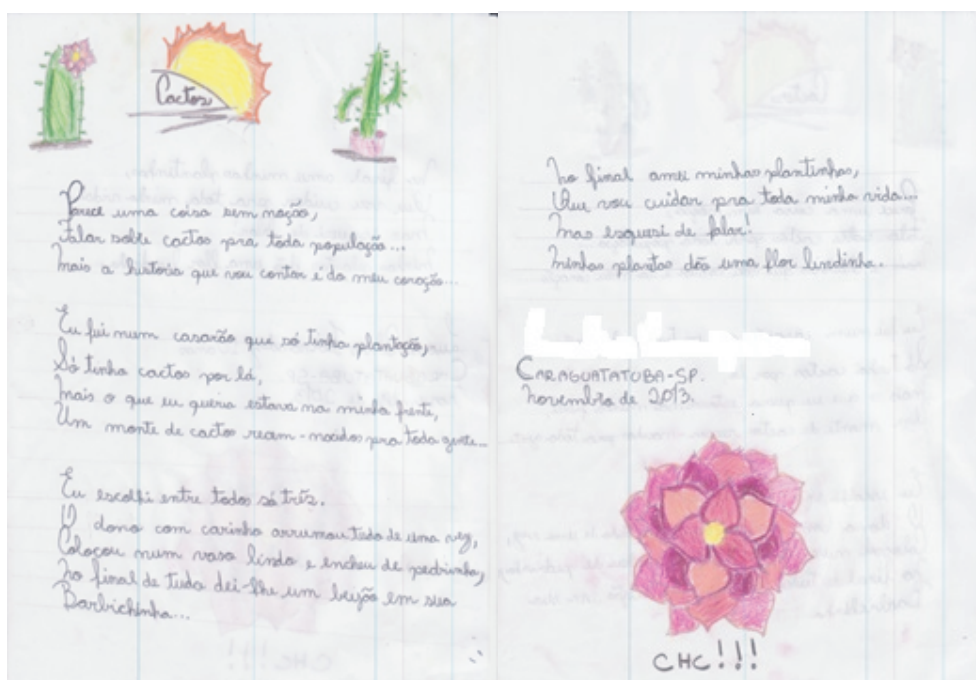 Cactos
Parece uma coisa sem noção,
Falar sobre cactos pra toda população...
Mais a história que vou contar é do meu coração...
Eu fui num casarão que só tinha plantação,
Só tinha cactos por lá,
Mais o que eu queria estava na minha frente,
Um monte de cactos recem-nacidos pra toda gente...
Eu escolhi entre todos só três.
O dono com carinho arrumou tudo de uma vez,
Colocou num vaso lindo e encheu de pedrinha,
No final de tudo dei-lhe um beijão em sua
Barbichinha...
No final amei minhas plantinhas,
Que vou cuidar pra toda minha vida...
Mas esqueci de falar!
Minhas plantas dão uma flor lindinha.
CARAGUATATUBA-SP.
Novembro de 2013.
CHC!!!